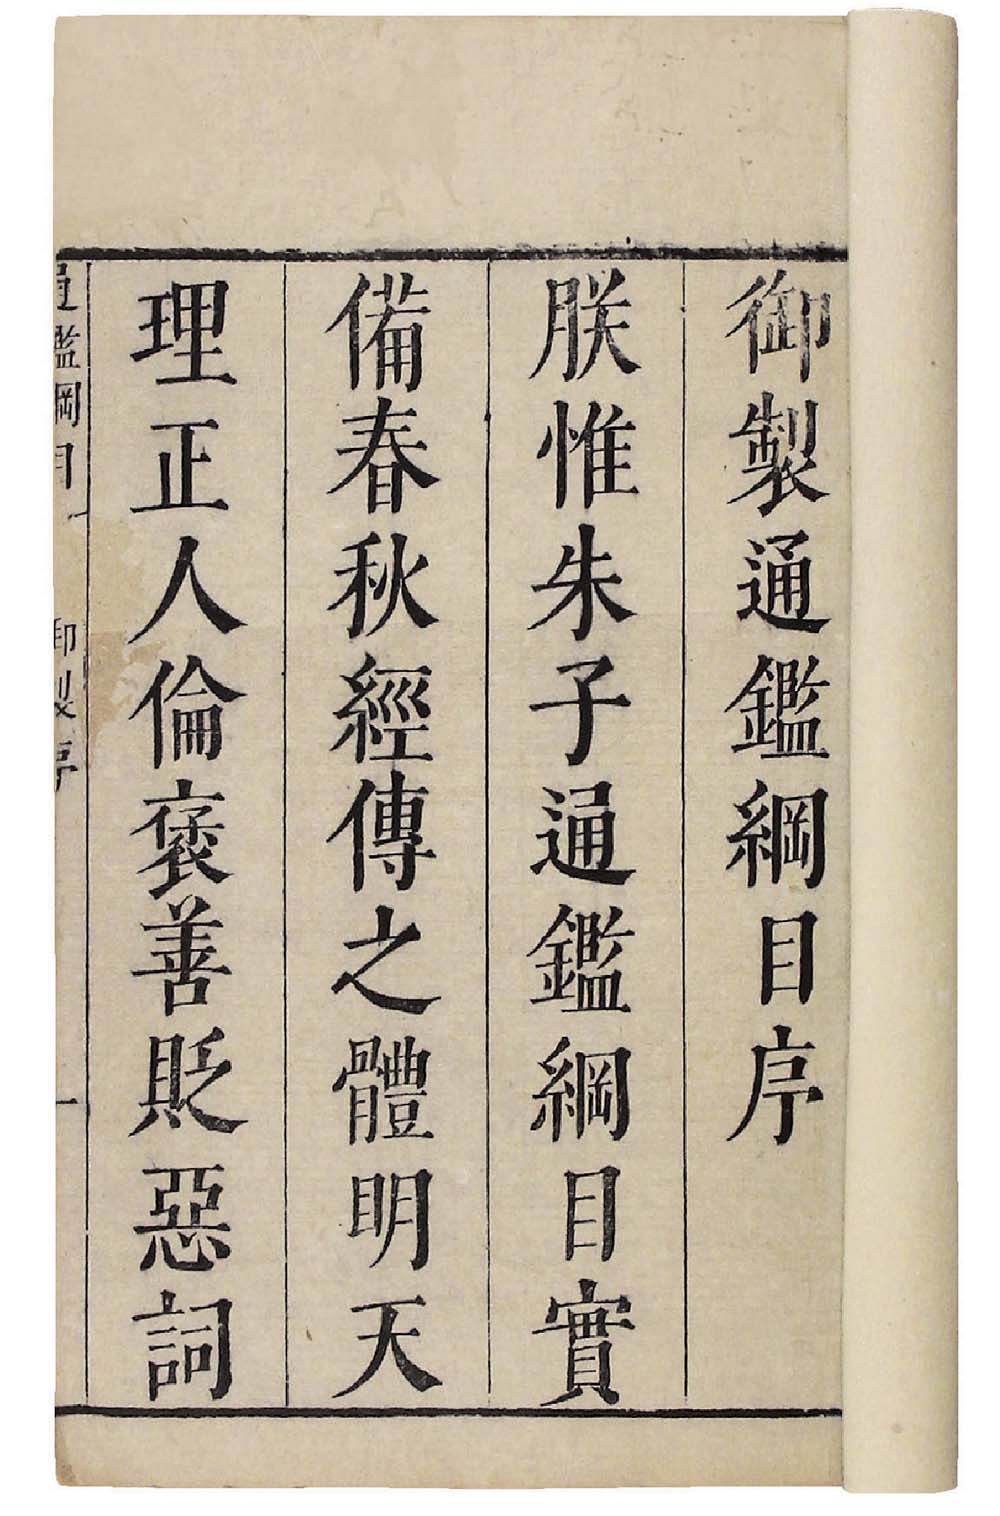 御製通鑑綱目序
朕惟朱子通鑑綱目實
備春秋經傳之體明天
理正人倫褒善貶惡詞
通鑑綱目 御製序 一